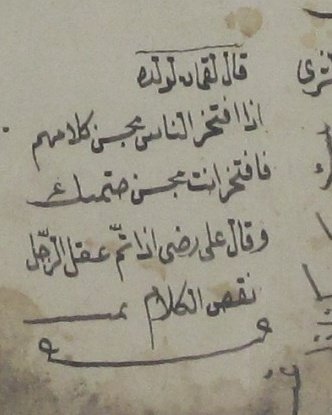 قال لقمان لولده
اذا افتخر الناس بحسن كلامهم
فافتخر انت بحسن صمتك
وقال على رضى اذا تمّ عقل الرجل
نقص الكلام تمـ